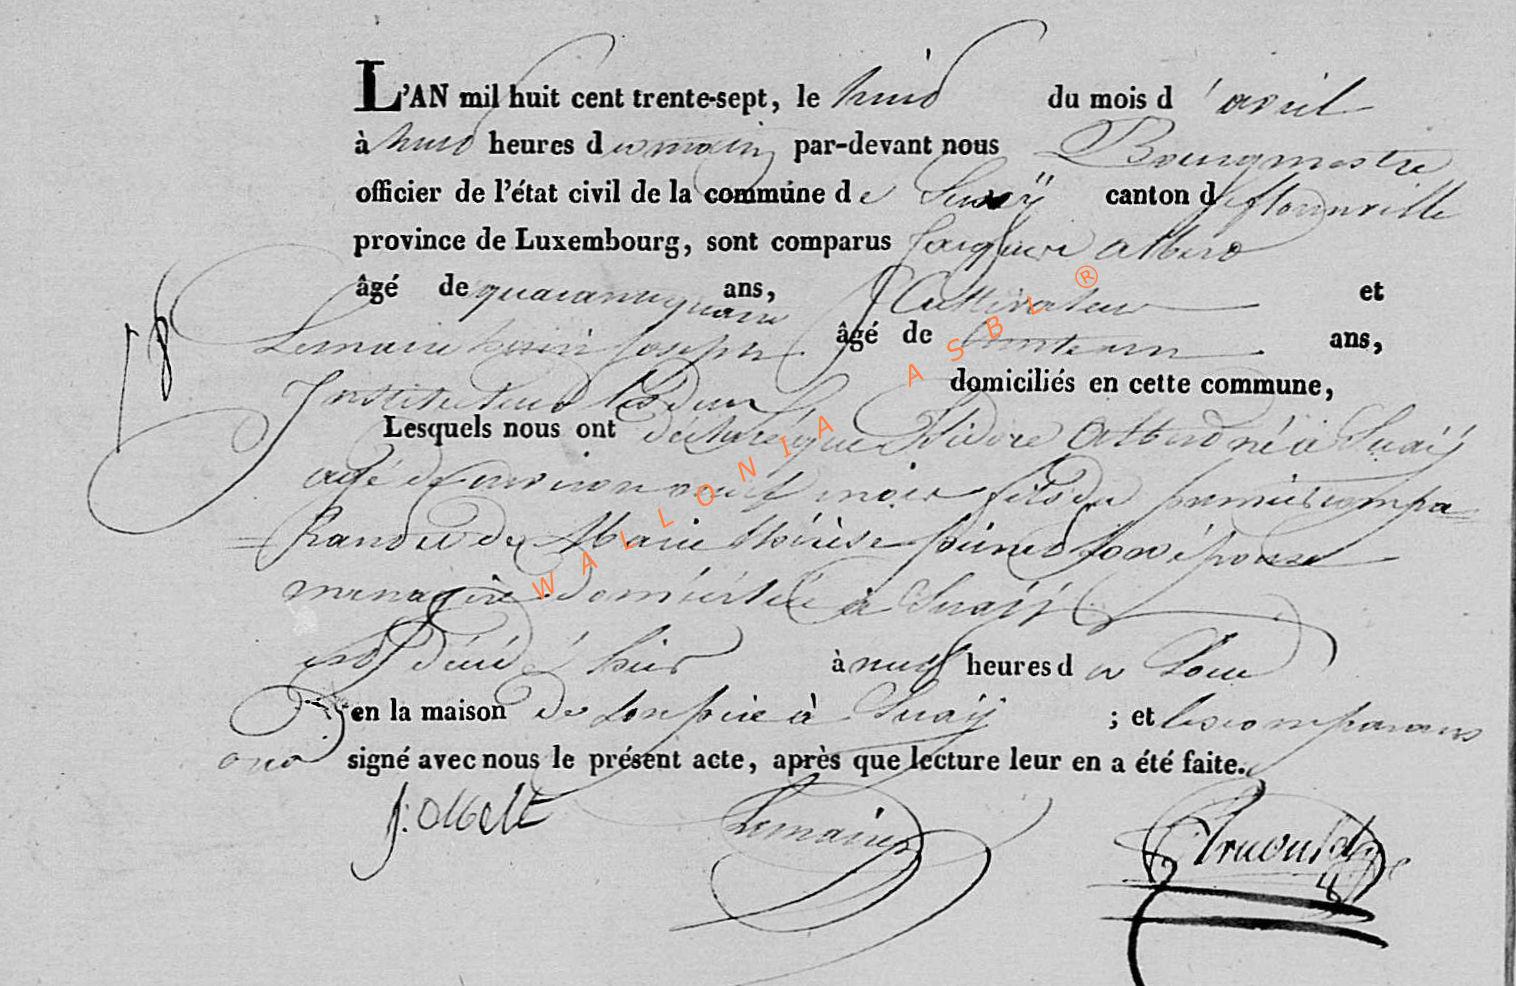 L'AN mil huit cent trente-sept, le huit du mois d'avril
à huit heures du matin par-devant nous Bourgmestre
officier de l'état civil de la commune de Suxÿ canton de florenville
province de Luxembourg, sont comparus Jacques Albert
âgé de quarante quatre ans, Cultivateur et
Lemaire Joseph âgé de ans,
Instituteur domiciliés en cette commune,
Lesquels nous ont déclaré que Isidore Albert né à Suaiÿ
agé d'environ neuf mois fils du premier compa=
=rant et de Marie thérèse son épouse
menagère domiciliée à Suaiÿ
est décédé hier à neuf heures du Soir
en la maison de son père à Suaiÿ ; et les comparans
ont signé avec nous le présent acte, après que lecture leur en a été faite.
j: Albert Lemaire
WALLONIA ASBL ®